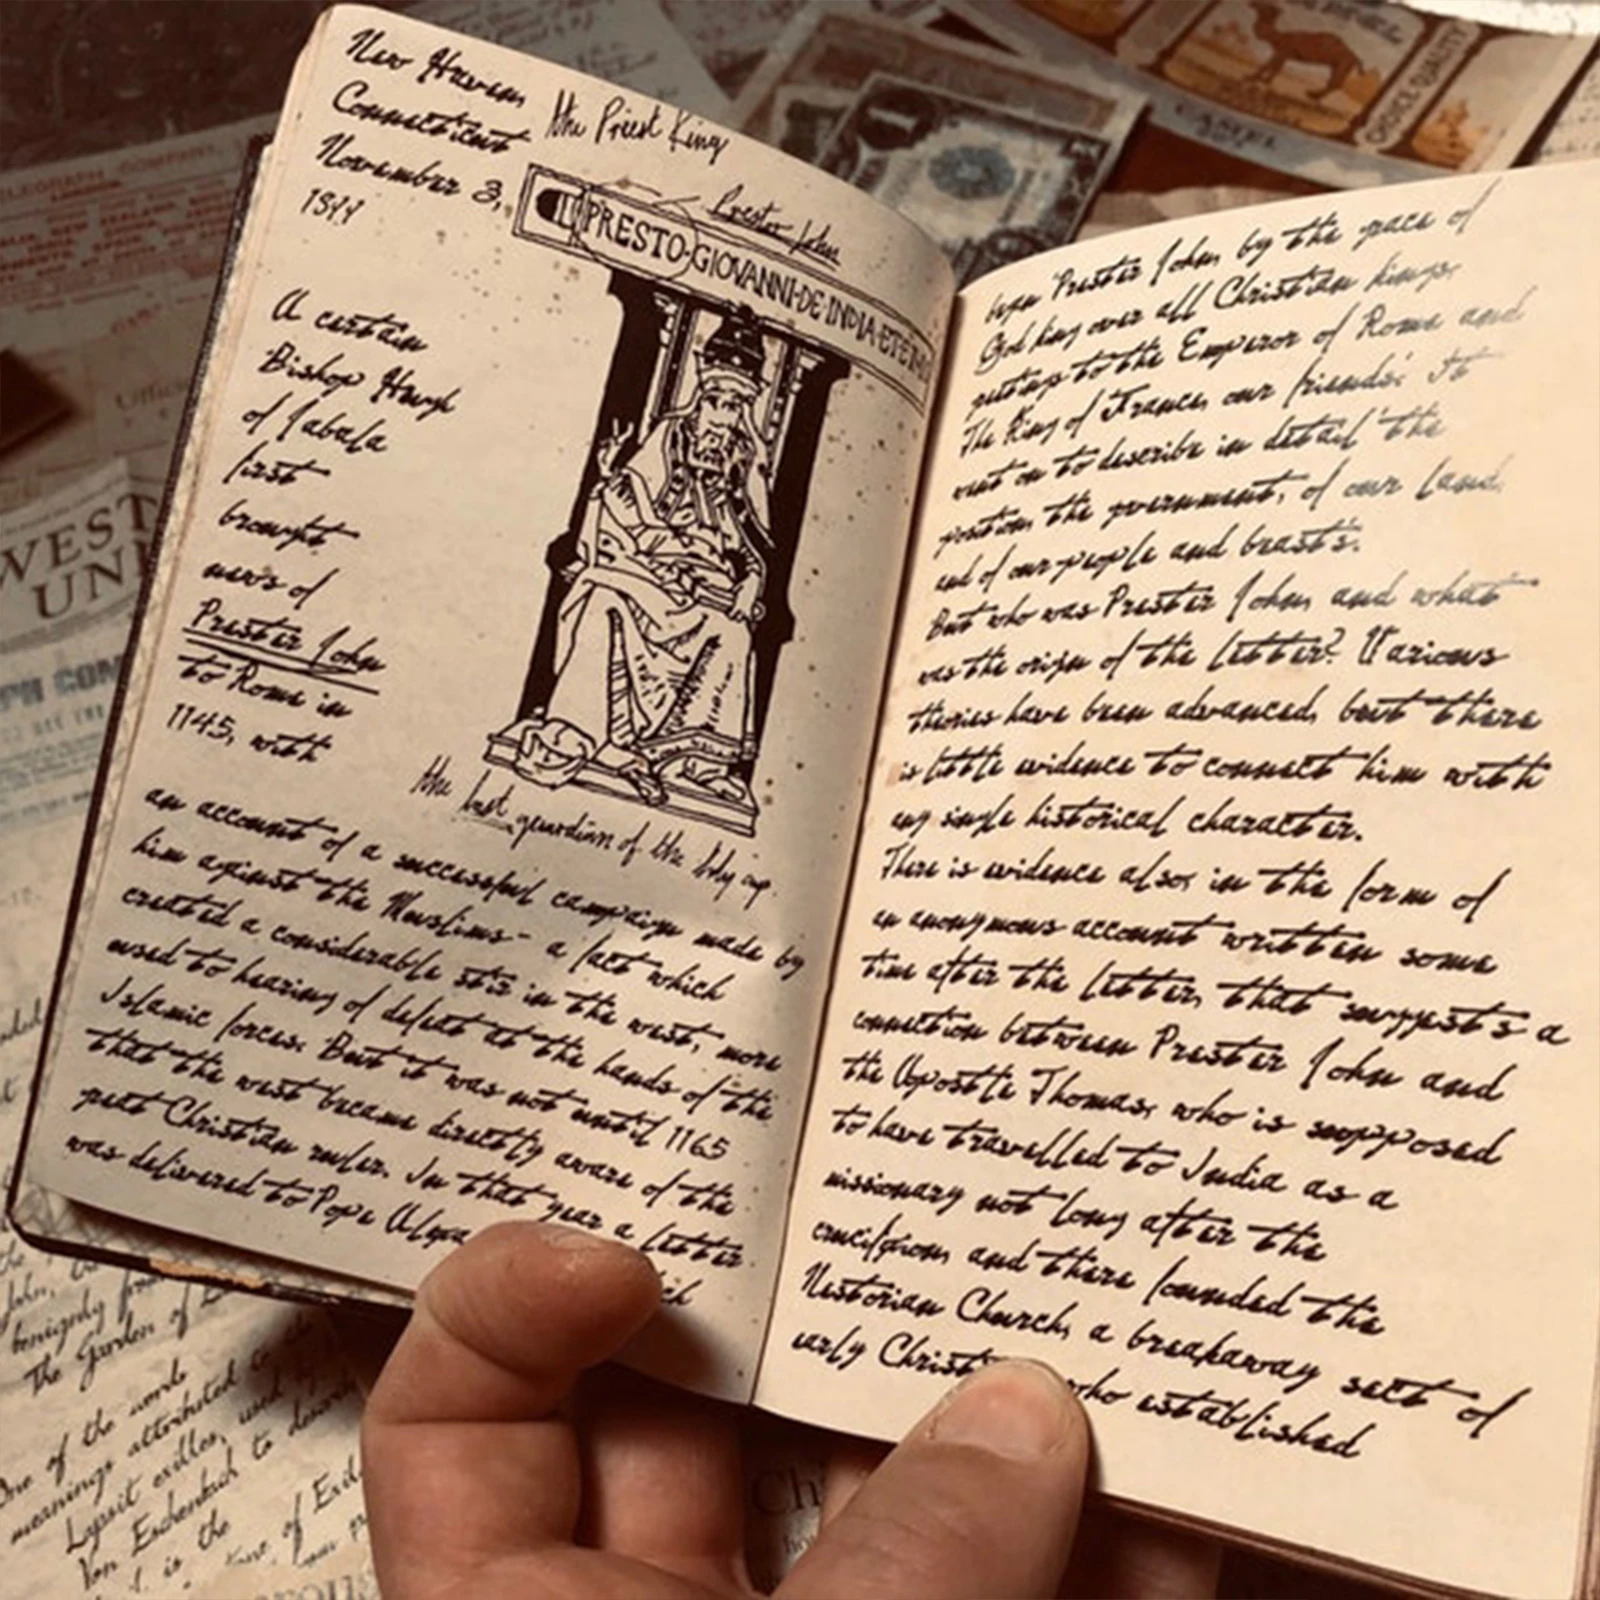 New Haven,
Connecticut
November 3,
the Priest King
Prester John
IL PRESTO·GIOVANNI·DE·INDIA·ET
A certain
Bishop Hugh
of Jabala
first
brought
news of
Prester John
to Rome in
1145, with
the last guardian of the holy cup.
an account of a successful campaign made by
him against the Muslims - a fact which
created a considerable stir in the west, more
used to hearing of defeat at the hands of the
Islamic forces. But it was not until 1165
that the west became directly aware of the
great Christian ruler. In that year a letter
was delivered to Pope
began 'Prester John, by the grace of
God king over all Christian kings,
greetings to the Emperor of Rome and
The King of France, our friends'. It
went on to describe in detail 'the
position, the government, of our land,
and of our people and beasts'.
But who was Prester John, and what
was the origin of the letter? Various
theories have been advanced, but there
is little evidence to connect him with
any single historical character.
There is evidence also, in the form of
an anonymous account written some
time after the letter, that suggests a
connection between Prester John and
the Apostle Thomas, who is supposed
to have travelled to India as a
missionary not long after the
crucifixion, and there founded the
Nestorian Church, a breakaway sect of
early who established
CHOICE QUALITY
WEST
UNI
benignly
The Garden of
One of the words
meanings attributed to
Lapsit exilles, used
Von Eschenbach to describe
is the